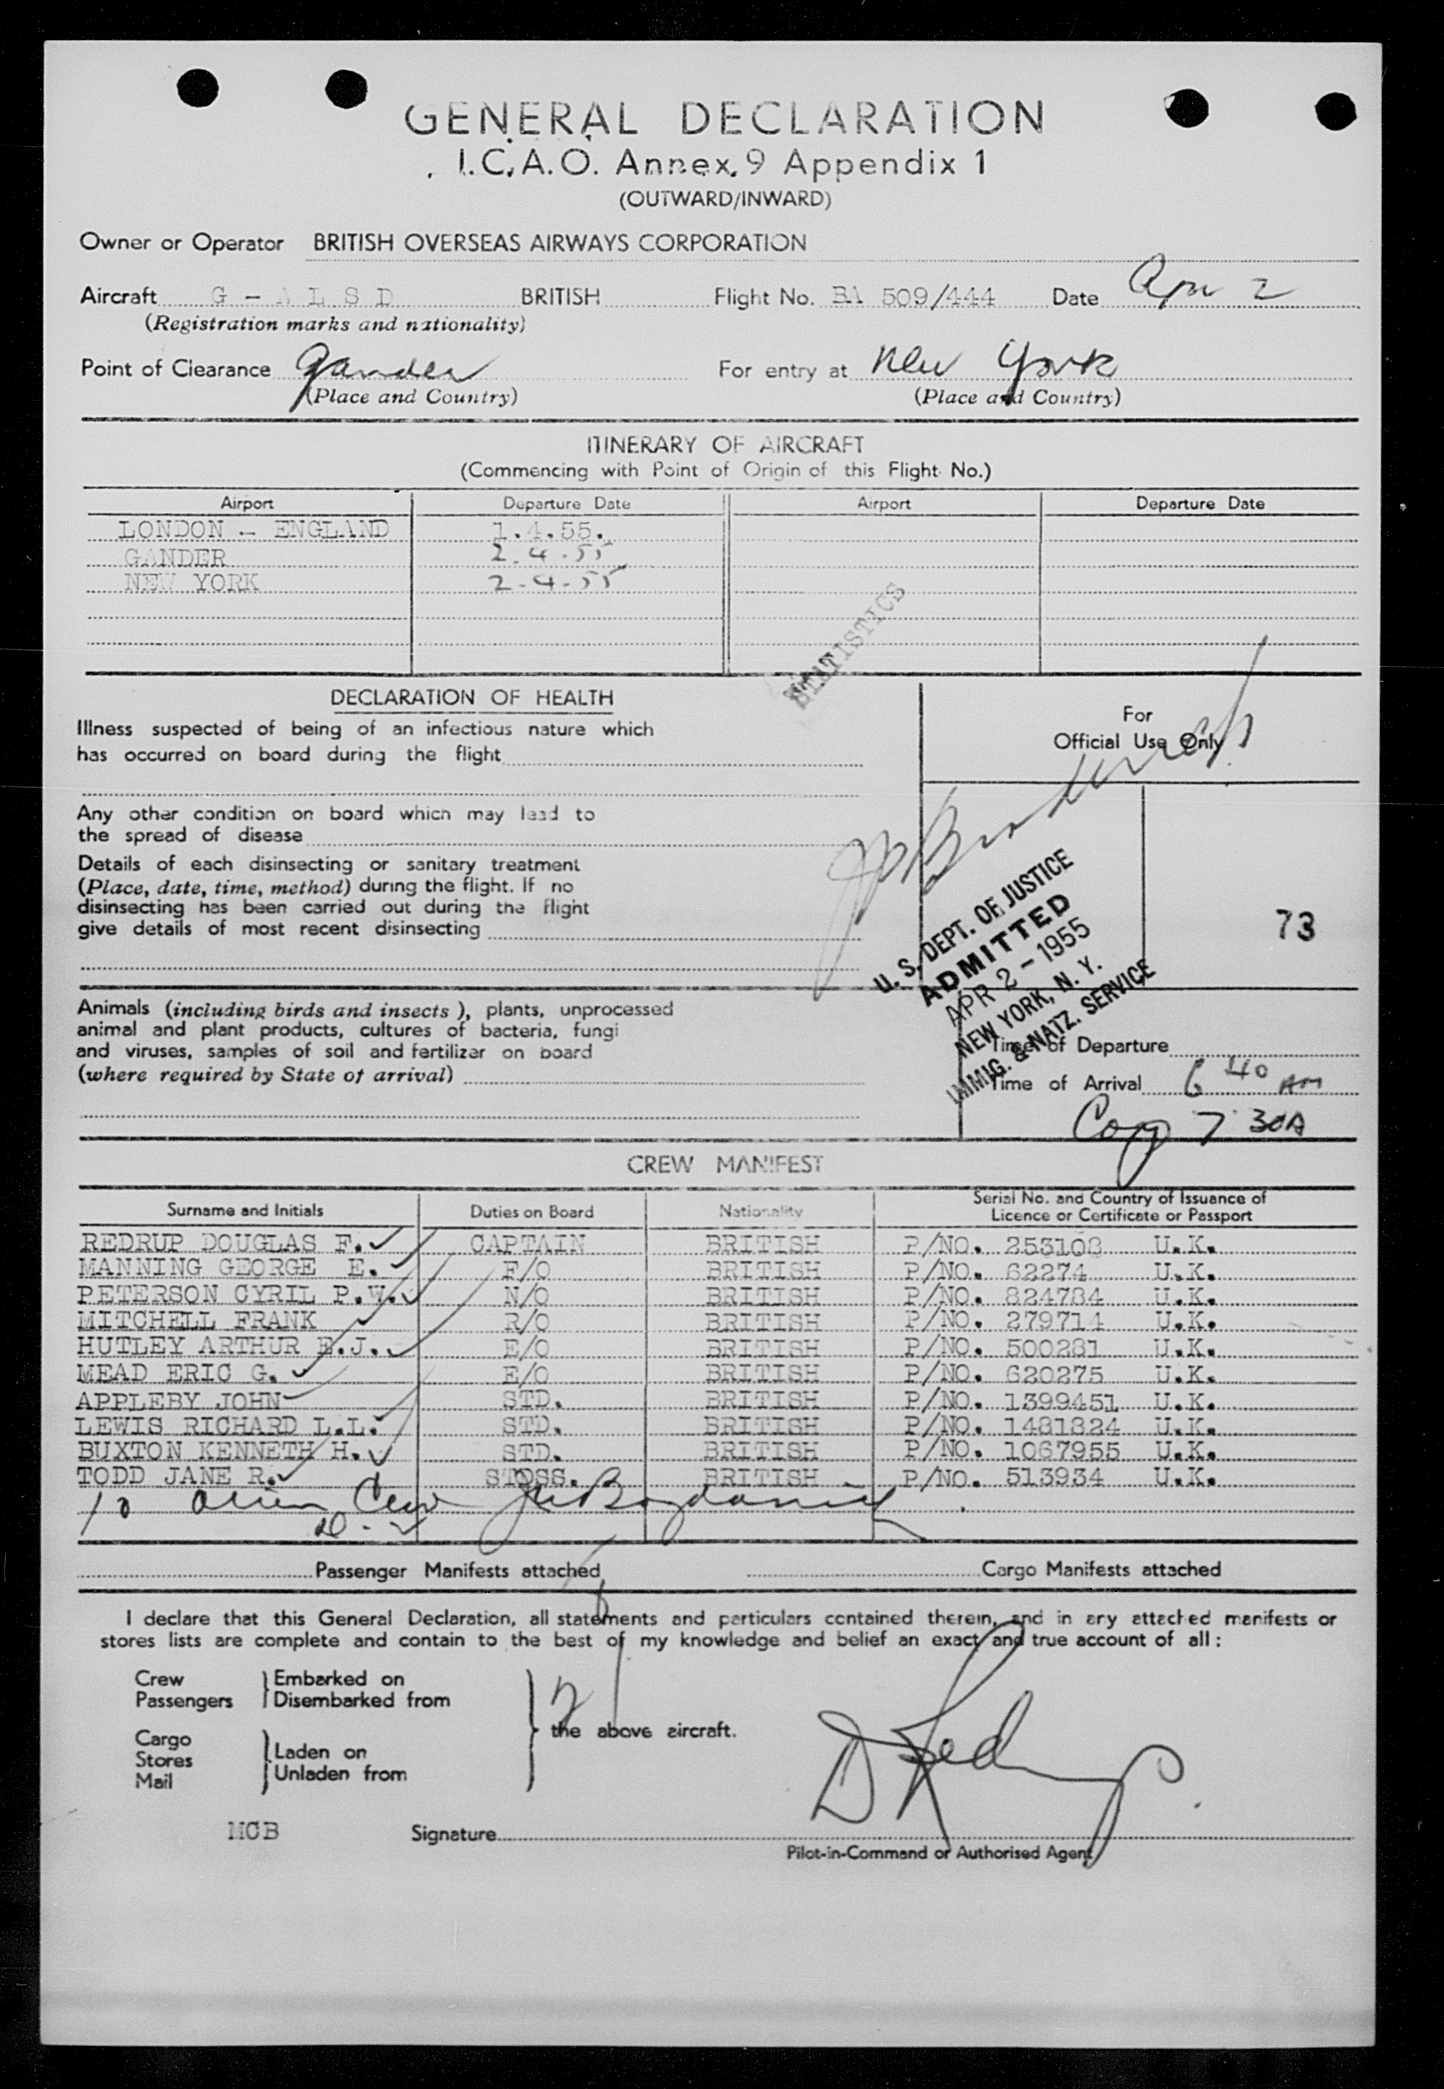 GENERAL DECLARATION
I.C.A.O. Annex 9 Appendix 1
(OUTWARD/INWARD)
Owner or Operator BRITISH OVERSEAS AIRWAYS CORPORATION
Aircraft G - A L S D BRITISH Flight No. BA 509/444 Date Apr 2
(Registration marks and nationality)
Point of Clearance Gander For entry at New York
(Place and Country) (Place and Country)
ITINERARY OF AIRCRAFT
(Commencing with Point of Origin of this Flight No.)
Airport Departure Date Airport Departure Date
LONDON - ENGLAND 1.4.55.
GANDER 2-4-55
NEW YORK 2-4-55
STATISTICS
DECLARATION OF HEALTH
For
Official Use Only
Illness suspected of being of an infectious nature which
has occurred on board during the flight
Any other condition on board which may lead to
the spread of disease
Details of each disinsecting or sanitary treatment
(Place, date, time, method) during the flight. If no
disinsecting has been carried out during the flight
give details of most recent disinsecting
U. S. DEPT. OF JUSTICE
ADMITTED
APR 2 - 1955
NEW YORK, N. Y.
IMMIG. & NATZ. SERVICE
73
Animals (including birds and insects ), plants, unprocessed
animal and plant products, cultures of bacteria, fungi
and viruses, samples of soil and fertilizer on board
(where required by State of arrival)
Time of Departure
Time of Arrival 6 40 AM
7 30A
CREW MANIFEST
Surname and Initials Duties on Board Nationality Serial No. and Country of Issuance of Licence or Certificate or Passport
REDRUP DOUGLAS F. CAPTAIN BRITISH P/NO. 253108 U.K.
MANNING GEORGE E. F/O BRITISH P/NO. 62274 U.K.
PETERSON CYRIL P.W. N/O BRITISH P/NO. 824784 U.K.
MITCHELL FRANK R/O BRITISH P/NO. 279714 U.K.
HUTLEY ARTHUR E.J. E/O BRITISH P/NO. 500281 U.K.
MEAD ERIC G. E/O BRITISH P/NO. 620275 U.K.
APPLEBY JOHN STD. BRITISH P/NO. 1399451 U.K.
LEWIS RICHARD L.L. STD. BRITISH P/NO. 1481824 U.K.
BUXTON KENNETH H. STD. BRITISH P/NO. 1067955 U.K.
TODD JANE R. STDSS. BRITISH P/NO. 513934 U.K.
10 alien Crew
Passenger Manifests attached Cargo Manifests attached
I declare that this General Declaration, all statements and particulars contained therein, and in any attached manifests or
stores lists are complete and contain to the best of my knowledge and belief an exact and true account of all :
Crew Embarked on
Passengers Disembarked from
the above aircraft.
Cargo
Stores Laden on
Mail Unladen from
D Redrup.
MCB Signature
Pilot-in-Command or Authorised Agent